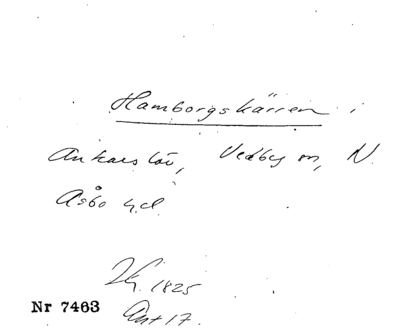 Hamborgskärren i
Ankarslöv, Vedby sn, N.
Åsbo hd.
Kg. 1825
Ant 17.
Nr 7463